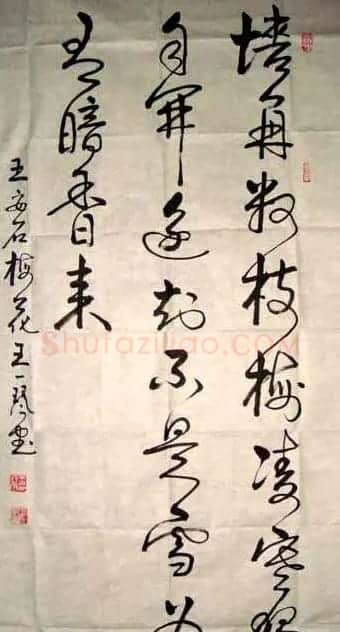 墙角数枝梅凌寒独
自开遥知不是雪为
有暗香来
王安石梅花王一琴书
Shufaziliao.com